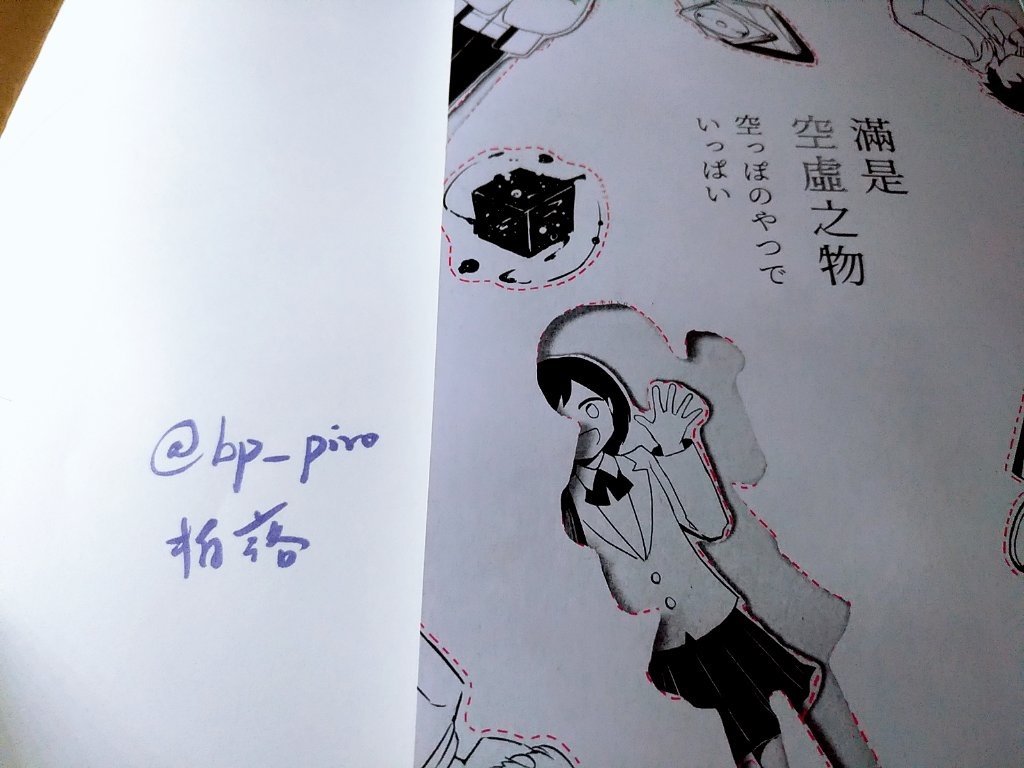 @bp_piro
柏落
滿是
空虛之物
空っぽのやつで
いっぱい